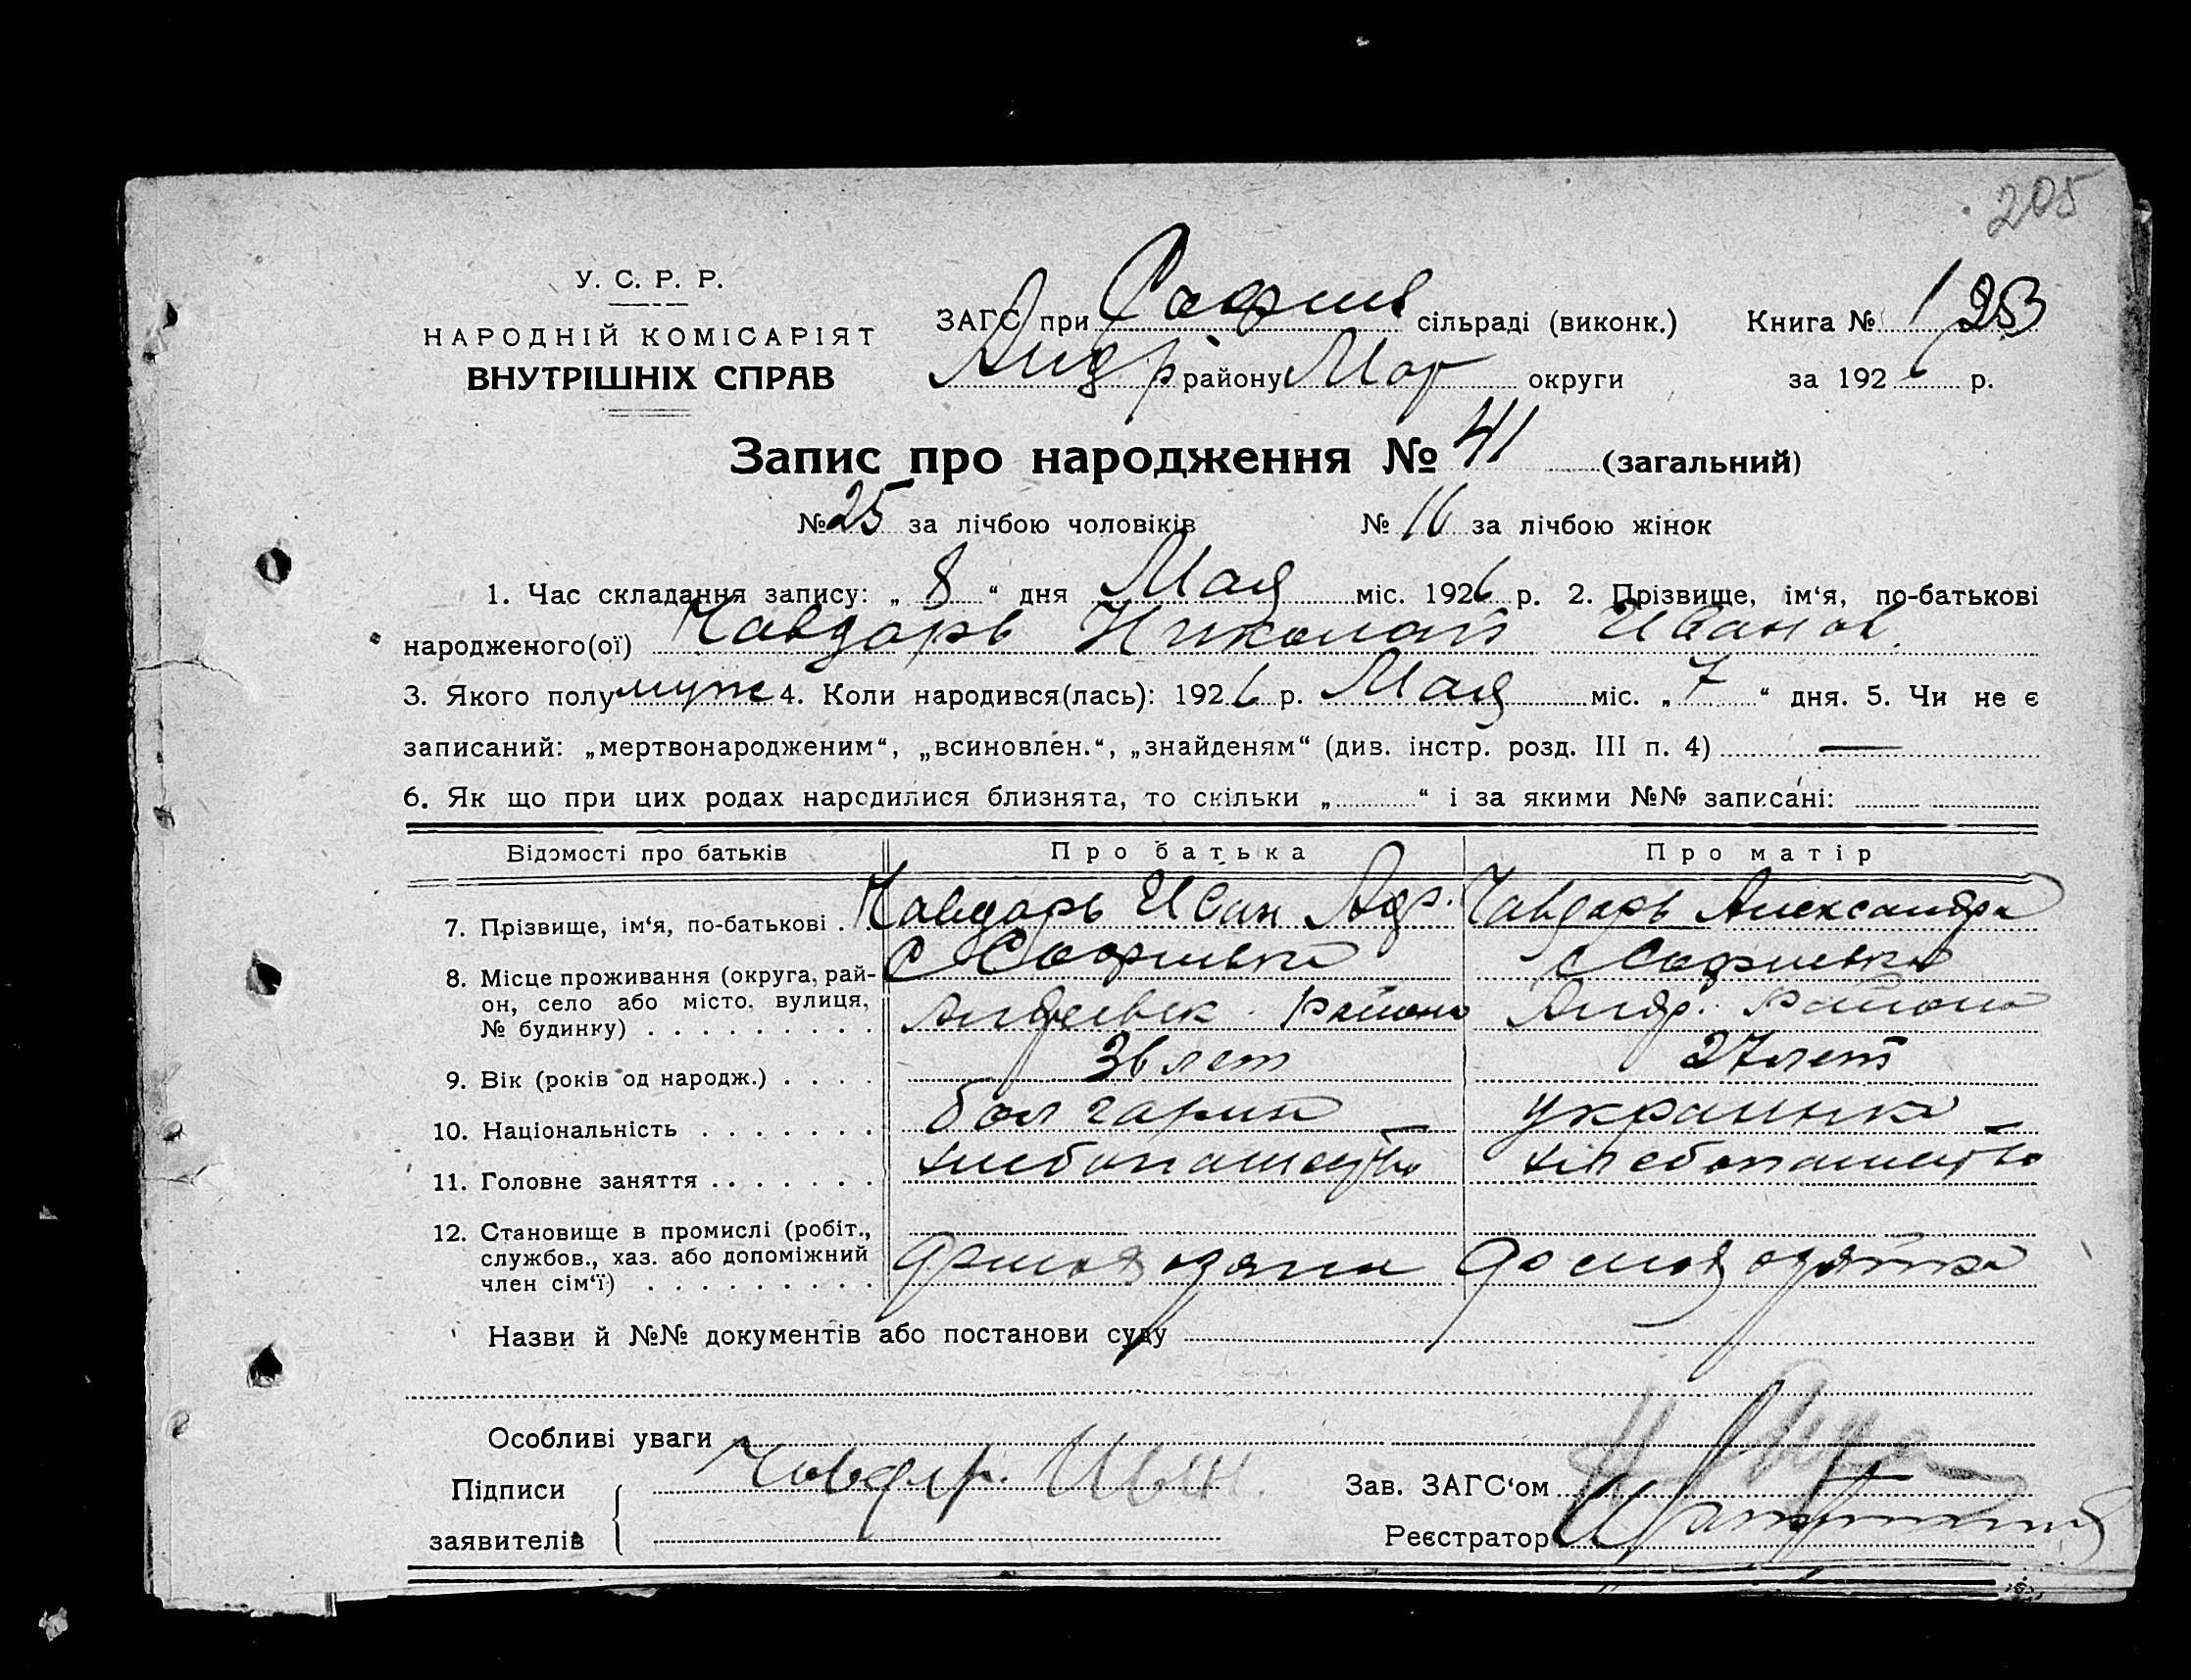 205
У. С. Р. Р.
НАРОДНІЙ КОМІСАРІЯТ
ВНУТРІШНІХ СПРАВ
ЗАГС при Софиев сільраді (виконк.) Книга № 1
Андр району Мар округи за 1926 р.
Запис про народження № 41 (загальний)
№ 25 за лічбою чоловіків № 16 за лічбою жінок
1. Час складання запису: „ 8 “ дня Мая міс. 1926 р. 2. Прізвище, ім‘я, по-батькові
народженого(ої) Чавдарь Николай Иванов.
3. Якого полу муж 4. Коли народився(лась): 1926 р. Мая міс. „ 7 “ дня. 5. Чи не є
записаний: „мертвонародженим“, „всиновлен.“, „знайденям“ (див. інстр. розд. III п. 4) —
6. Як що при цих родах народилися близнята, то скільки „ “ і за якими №№ записані:
Відомості про батьків Про батька Про матір
7. Прізвище, ім‘я, по-батькові . . Чавдарь Иван Чавдарь Александра
8. Місце проживання (округа, рай- с Софиевка с Софиевка
он, село або місто, вулиця, № будинку) . . . . . . . . . района Андр. района
9. Вік (років од народж.) . . . . 36 лет 27 лет
10. Національність . . . . . . . болгарин украинка
11. Головне заняття . . . . . . . хлебопашество хлебопашество
12. Становище в промислі (робіт.,
службов., хаз. або допоміжний
член сім‘ї) . . . . . . . . .
Назви й №№ документів або постанови суду
Особливі уваги
Підписи Чавдар. Иван. Зав. ЗАГС‘ом
заявителів Реєстратор